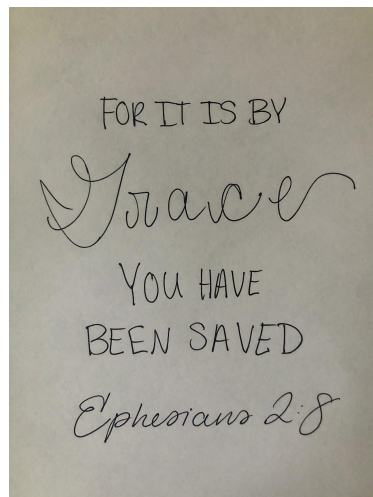 FOR IT IS BY
Grace
YOU HAVE
BEEN SAVED
Ephesians 2:8